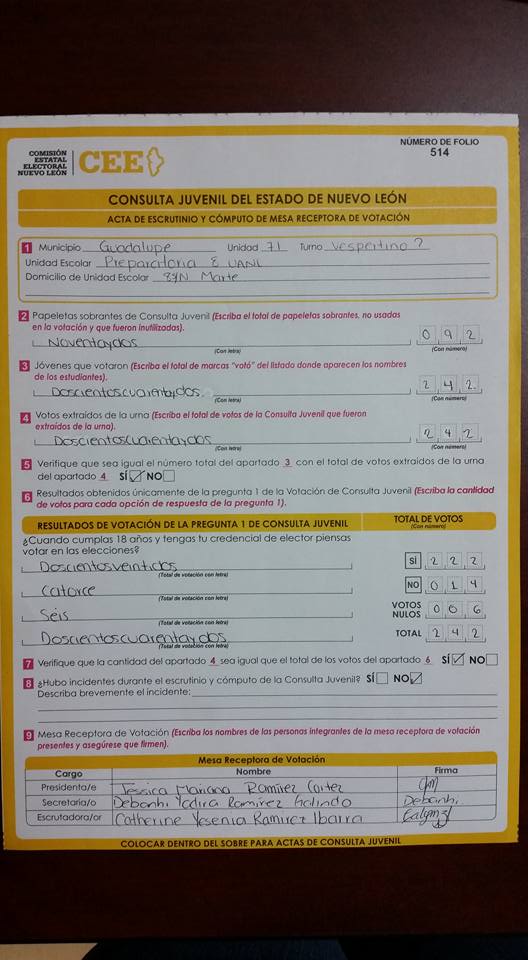 COMISIÓN
ESTATAL
ELECTORAL
NUEVO LEÓN
CEE
NÚMERO DE FOLIO
514
CONSULTA JUVENIL DEL ESTADO DE NUEVO LEÓN
ACTA DE ESCRUTINIO Y CÓMPUTO DE MESA RECEPTORA DE VOTACIÓN
1 Municipio Guadalupe Unidad 71 Turno Vespertino ?
Unidad Escolar Preparatoria 8 UANL
Domicilio de Unidad Escolar S/N Marte
2 Papeletas sobrantes de Consulta Juvenil (Escriba el total de papeletas sobrantes, no usadas
en la votación y que fueron inutilizadas).
Noventaydos 0 9 2
(Con letra) (Con número)
3 Jóvenes que votaron (Escriba el total de marcas "votó" del listado donde aparecen los nombres
de los estudiantes).
Doscientoscuarentaydos. 2 4 2
(Con letra) (Con número)
4 Votos extraídos de la urna (Escriba el total de votos de la Consulta Juvenil que fueron
extraídos de la urna).
Doscientoscuarentaydos 2 4 2
(Con letra) (Con número)
5 Verifique que sea igual el número total del apartado 3 con el total de votos extraídos de la urna
del apartado 4 SÍ NO
6 Resultados obtenidos únicamente de la pregunta 1 de la Votación de Consulta Juvenil (Escriba la cantidad
de votos para cada opción de respuesta de la pregunta 1).
RESULTADOS DE VOTACIÓN DE LA PREGUNTA 1 DE CONSULTA JUVENIL TOTAL DE VOTOS
(Con número)
¿Cuando cumplas 18 años y tengas tu credencial de elector piensas
votar en las elecciones?
Doscientosveintidos SÍ 2 2 2
(Total de votación con letra)
Catorce NO 0 1 4
(Total de votación con letra)
Séis VOTOS NULOS 0 0 6
(Total de votación con letra)
Doscientoscuarentaydos TOTAL 2 4 2
(Total de votación con letra)
7 Verifique que la cantidad del apartado 4 sea igual que el total de los votos del apartado 6 SÍ NO
8 ¿Hubo incidentes durante el escrutinio y cómputo de la Consulta Juvenil? SÍ NO
Describa brevemente el incidente:
9 Mesa Receptora de Votación (Escriba los nombres de las personas integrantes de la mesa receptora de votación
presentes y asegúrese que firmen).
Mesa Receptora de Votación
Cargo Nombre Firma
Presidenta/e Jessica Mariana Ramírez Cortez
Secretaria/o Debanhi Yadira Ramírez Galindo Debanhi
Escrutadora/or Catherine Yesenia Ramirez Ibarra
COLOCAR DENTRO DEL SOBRE PARA ACTAS DE CONSULTA JUVENIL